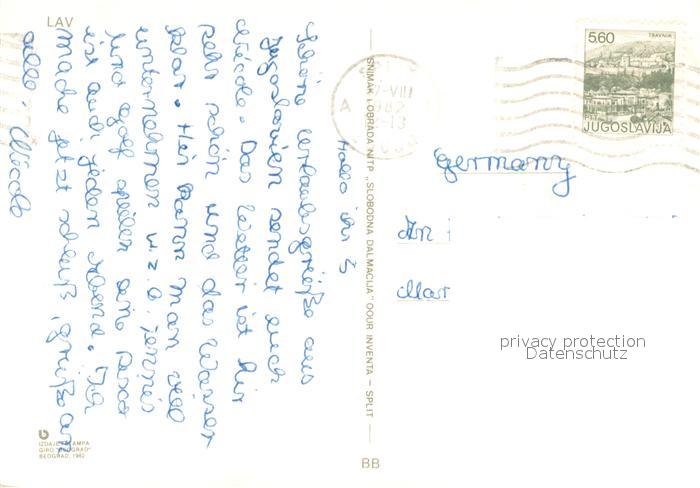 LAV
Hallo ihr 5
Schöne Urlaubsgrüße aus
Jugoslavien sendet euch
Nicole. Das Wetter ist hir
sehr schön und das Wasser
klar. Hir kann man viel
unternehmen u.z.b. Tennies
und Golf spielen eine Disco
ist auch jeden Abend. Ich
mache jetzt schluß, grüße an
alle. Nicole
IZDAJE I ŠTAMPA
GIRO "BEOGRAD"
BEOGRAD, 1982
SNIMAK I OBRADA NITP „SLOBODNA DALMACIJA" OOUR INVENTA — SPLIT
BB
TRAVNIK
5,60
JUGOSLAVIJA
VIII
1982
A
-13
Germany
An
Mar
privacy protection
Datenschutz